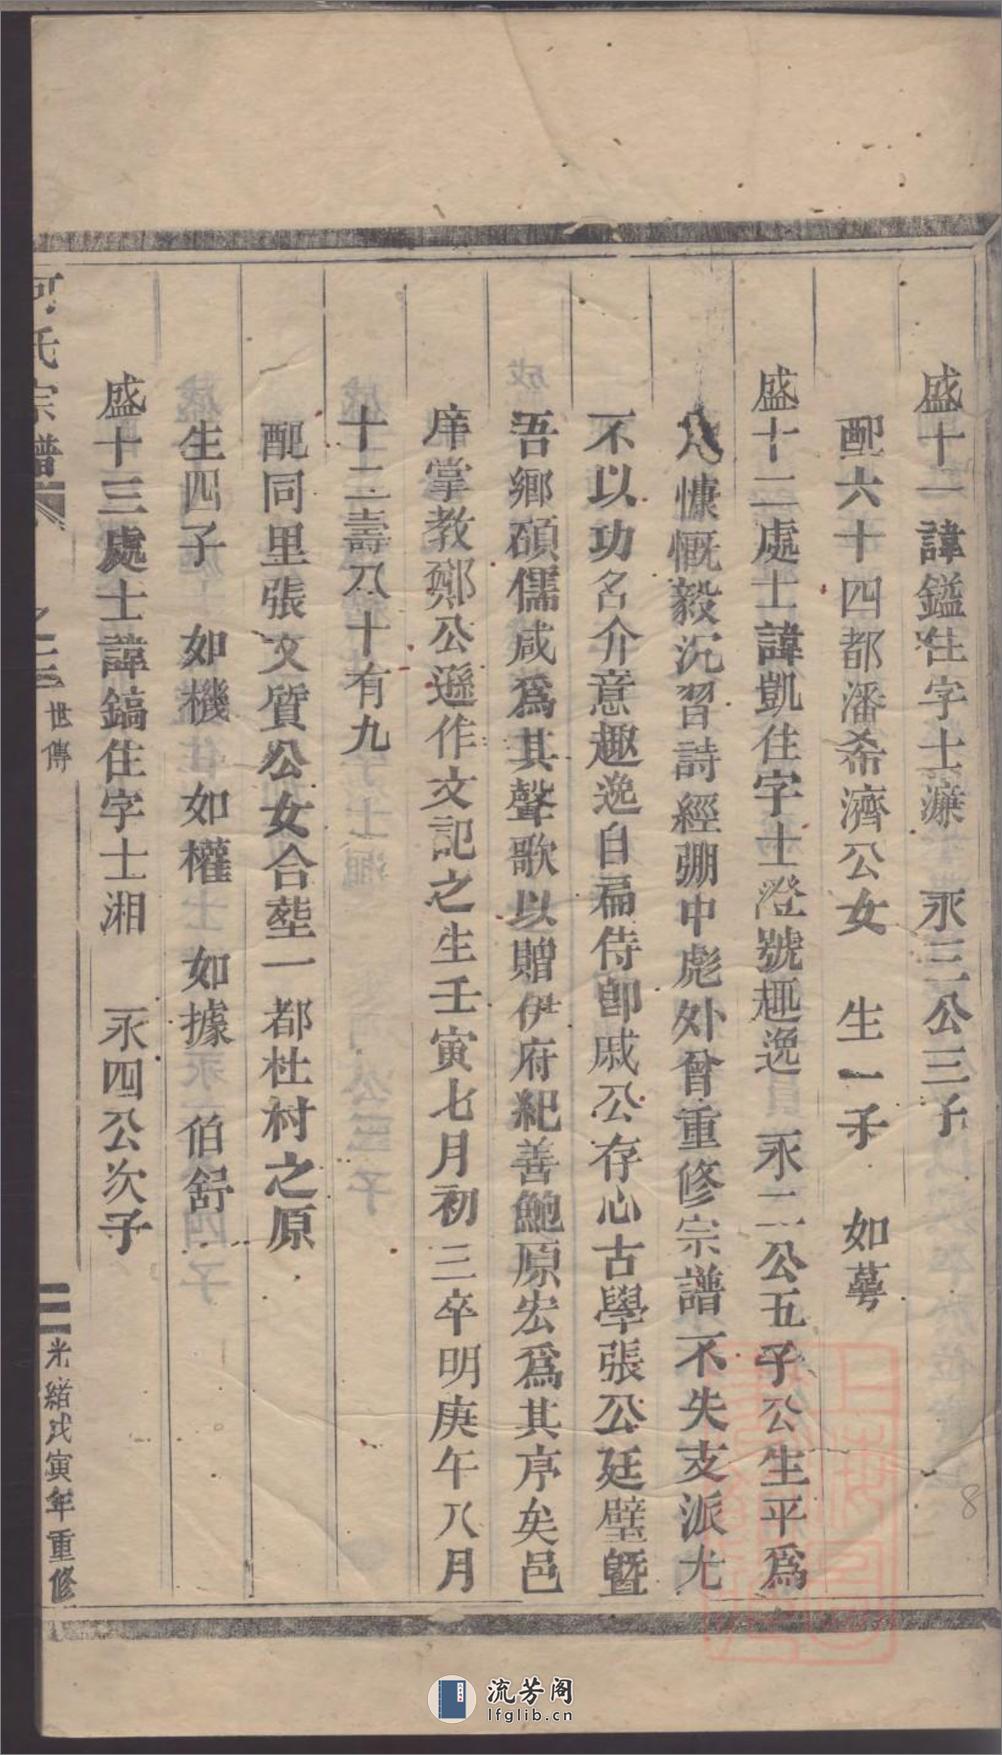 盛十一諱鎰住字士濂 永三公三子
配六十四都潘希濟公女 生一子 如萼
盛十二處士諱凱住字士澄號趣逸 永二公五子公生平爲
人慷慨毅沉習詩經弸中彪外曾重修宗譜不失支派尤
不以功名介意趣逸自扁侍郎戚公存心古學張公廷璧曁
吾鄉碩儒咸爲其聲歌以贈伊府紀善鮑原宏爲其序矣邑
庠掌教鄭公遜作文記之生壬寅七月初三卒明庚午八月
十二壽八十有九
配同里張文質公女合塟一都杜村之原
生四子 如機 如權 如據 伯舒
盛十三處士諱鎬住字士湘 永四公次子
何氏宗譜
世傳
光緒戊寅年重修
8
流芳阁
lfglib.cn